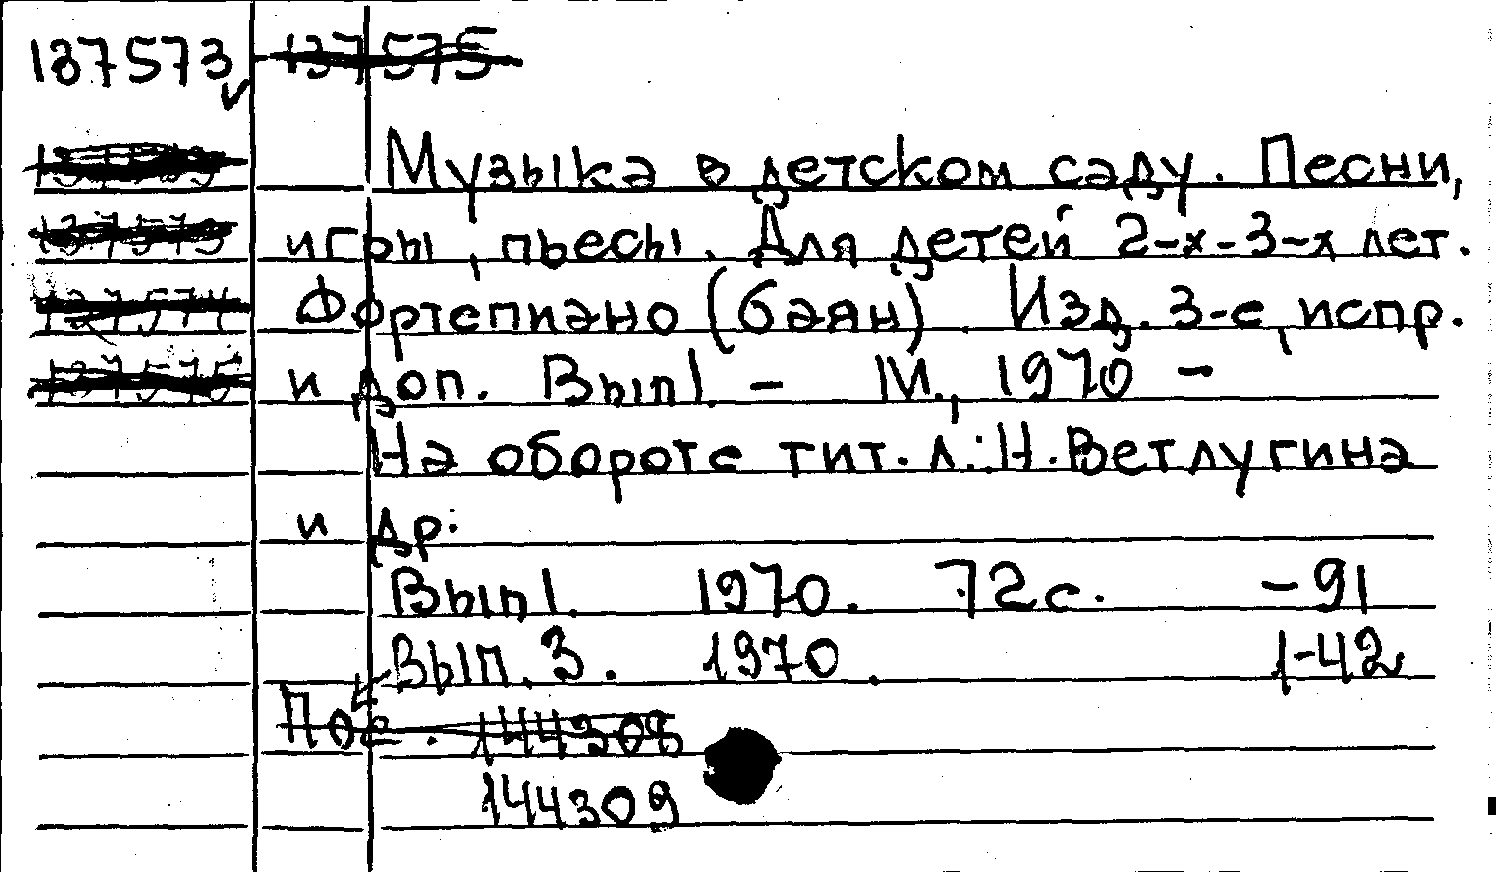 137573 137575
Музыка в детском саду. Песни,
137573 игры, пьесы. Для детей 2-х-3-х лет.
137574 Фортепиано (баян). Изд. 3-е, испр.
137575 и доп. Вып 1. - М., 1970 -
На обороте тит. л.: Н. Ветлугина
и др.
Вып 1. 1970. 72 с. - 91
Вып. 3. 1970. 1-42
Пос. 144308
144309